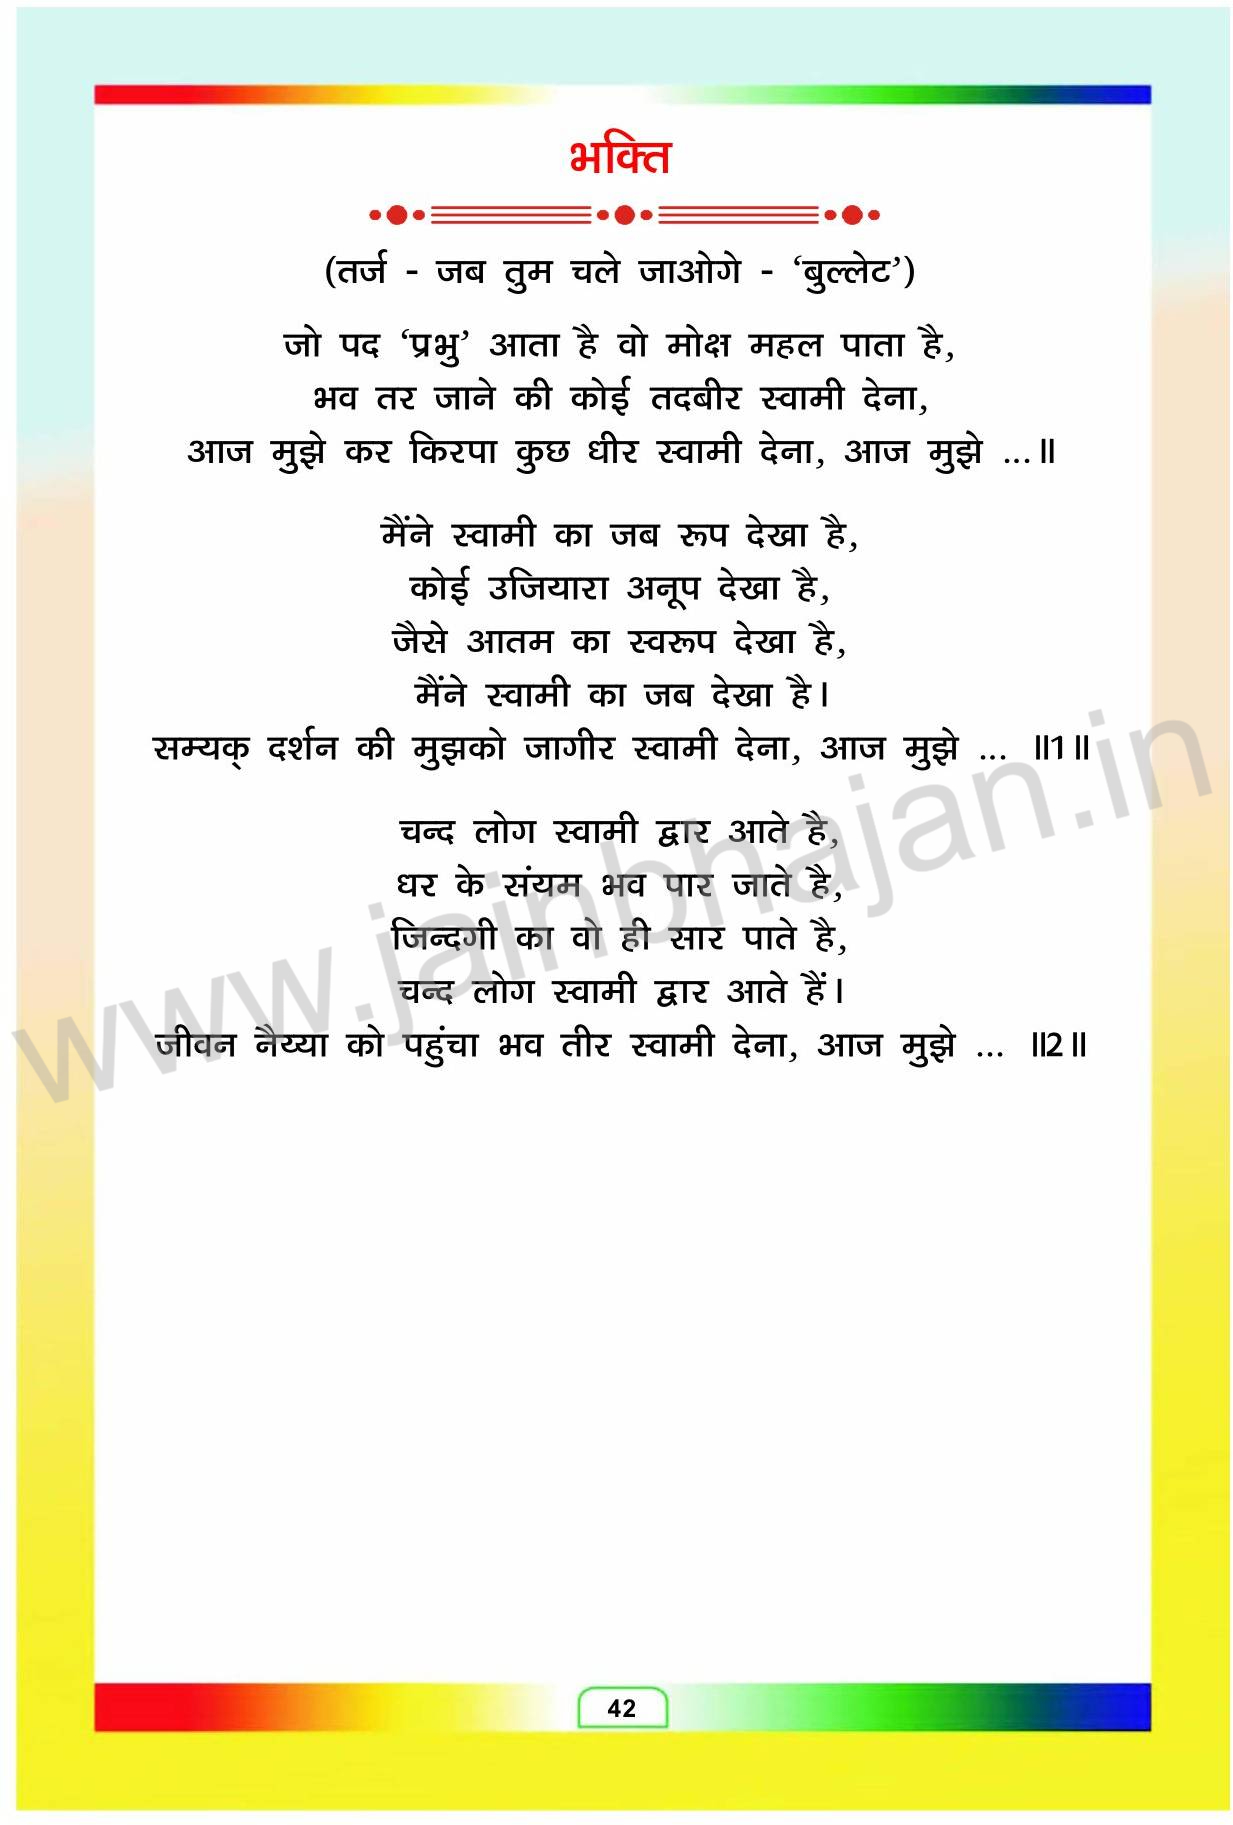 भक्ति
(तर्ज - जब तुम चले जाओगे - ‘बुल्लेट’)
जो पद ‘प्रभु’ आता है वो मोक्ष महल पाता है,
भव तर जाने की कोई तदबीर स्वामी देना,
आज मुझे कर किरपा कुछ धीर स्वामी देना, आज मुझे ...॥
मैंने स्वामी का जब रूप देखा है,
कोई उजियारा अनूप देखा है,
जैसे आतम का स्वरूप देखा है,
मैंने स्वामी का जब देखा है।
सम्यक् दर्शन की मुझको जागीर स्वामी देना, आज मुझे ... ॥1॥
चन्द लोग स्वामी द्वार आते है,
धर के संयम भव पार जाते है,
जिन्दगी का वो ही सार पाते है,
चन्द लोग स्वामी द्वार आते हैं।
जीवन नैय्या को पहुंचा भव तीर स्वामी देना, आज मुझे ... ॥2॥
www.jainbhajan.in
42